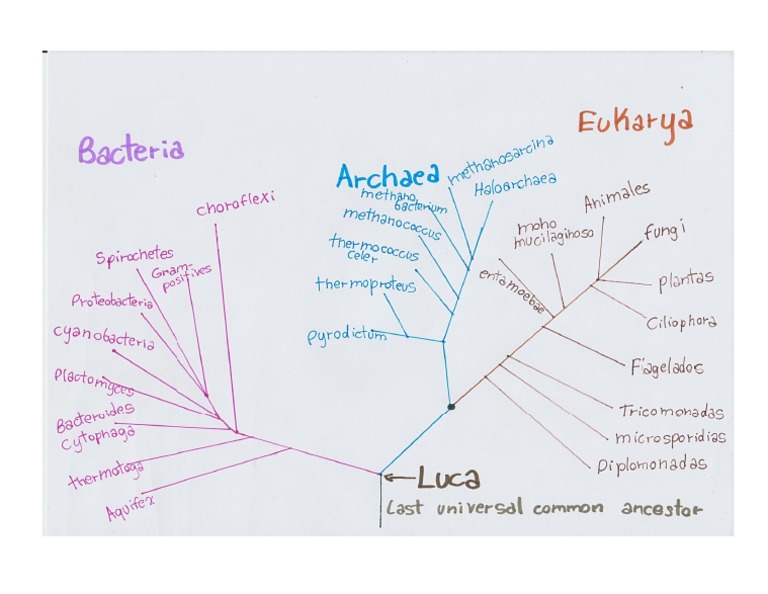 Eukarya
Bacteria
Archaea
choroflexi
Spirochetes
Gram-
positives
Proteobacteria
cyanobacteria
Plactomyces
Bacteroides
Cytophaga
thermotoga
Aquifex
methanosarcina
Haloarchaea
methano
bacterium
methanococcus
thermococcus
celer
thermoproteus
pyrodictum
Animales
moho
mucilaginoso
fungi
entamoebae
plantas
Ciliophora
Flagelados
Tricomonadas
microsporidias
Diplomonadas
Luca
Last universal common ancestor